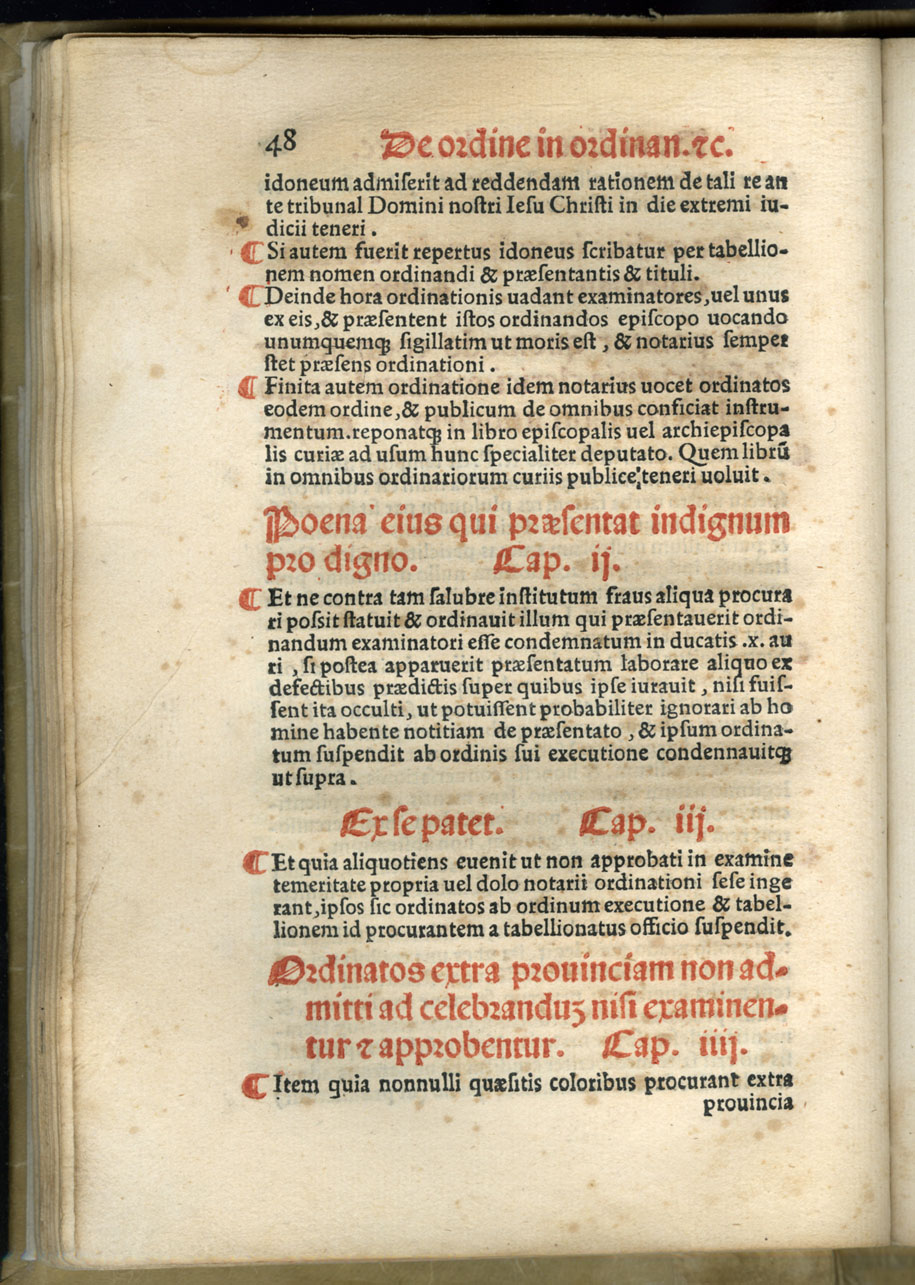 48 De ordine in ordinan. ⁊c.
idoneum admiſerit ad reddendam rationem de tali re an
te tribunal Domini noſtri Ieſu Chriſti in die extremi iu-
dicii teneri.
¶ Si autem fuerit repertus idoneus ſcribatur per tabellio-
nem nomen ordinandi & præſentantis & tituli.
¶ Deinde hora ordinationis uadant examinatores, uel unus
ex eis, & præſentent iſtos ordinandos epiſcopo uocando
unumquemꝗ ſigillatim ut moris eſt, & notarius ſemper
ſtet præſens ordinationi.
¶ Finita autem ordinatione idem notarius uocet ordinatos
eodem ordine, & publicum de omnibus conficiat inſtru-
mentum. reponatꝗ in libro epiſcopalis uel archiepiſcopa
lis curiæ ad uſum hunc ſpecialiter deputato. Quem librū
in omnibus ordinariorum curiis publice teneri uoluit.
Poena eius qui præſentat indignum
pro digno. Cap. ij.
¶ Et ne contra tam ſalubre inſtitutum fraus aliqua procura
ri poſſit ſtatuit & ordinauit illum qui præſentauerit ordi-
nandum examinatori eſſe condemnatum in ducatis .x. au
ri, ſi poſtea apparuerit præſentatum laborare aliquo ex
defectibus prædictis ſuper quibus ipſe iurauit, niſi fuiſ-
ſent ita occulti, ut potuiſſent probabiliter ignorari ab ho
mine habente notitiam de præſentato, & ipſum ordina-
tum ſuſpendit ab ordinis ſui executione condennauitꝗ
ut ſupra.
Ex ſe patet. Cap. iij.
¶ Et quia aliquotiens euenit ut non approbati in examine
temeritate propria uel dolo notarii ordinationi ſeſe inge
rant, ipſos ſic ordinatos ab ordinum executione & tabel-
lionem id procurantem a tabellionatus officio ſuſpendit.
Ordinatos extra prouinciam non ad-
mitti ad celebranduꝫ niſi examinen-
tur ⁊ approbentur. Cap. iiij.
¶ Item quia nonnulli quæſitis coloribus procurant extra
prouincia